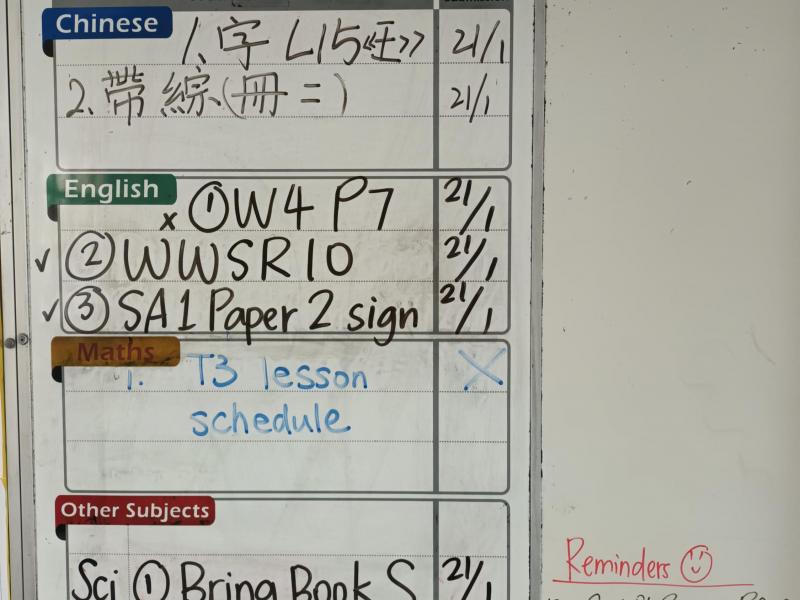 Chinese
1. 字 L15《王》 21/1
2. 帶 綜(冊二) 21/1
English
x ① W4 P7 21/1
✓ ② WWSR10 21/1
✓ ③ SA1 Paper 2 sign 21/1
Maths
1. T3 lesson X
schedule
Other Subjects
Sci ① Bring Book S 21/1
Reminders ☺